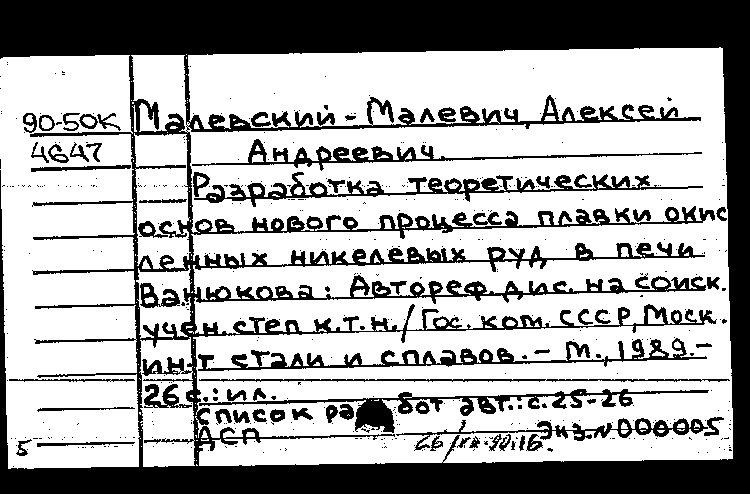 90-50К Малевский-Малевич, Алексей
4647 Андреевич.
Разработка теоретических
основ нового процесса плавки окис
ленных никелевых руд в печи
Ванюкова: Автореф. дис. на соиск.
учен. степ к.т.н./Гос. ком. СССР, Моск.
ин-т стали и сплавов. - М., 1989.-
26 с.: ил.
Список работ авт.: с. 25-26
ДСП Экз. N 000005
5